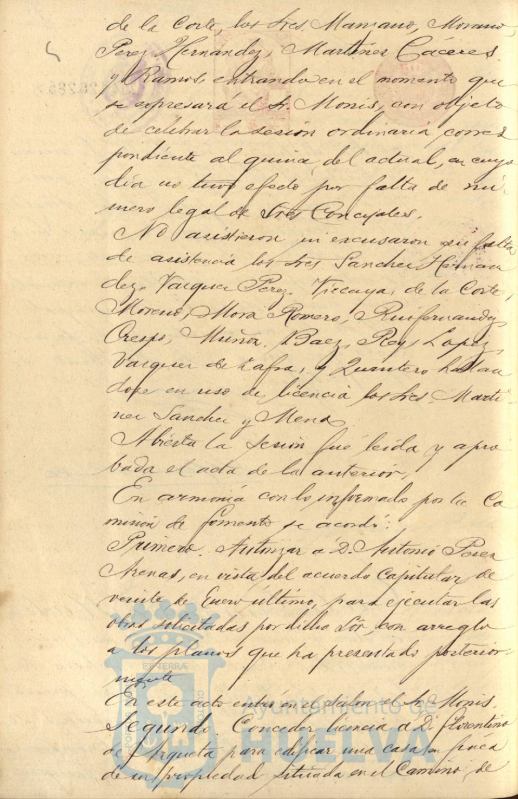 de la Corte, los Sres Manzano, Moreno,
Perez Hernandez, Martinez Cáceres
y Ramos, entrando en el momento que
se expresará el Sr. Monis, con objeto
de celebrar la sesión ordinaria, corres
pondiente al quince del actual, en cuyo
día no tuvo efecto por falta de nú-
mero legal de Sres Concejales.
No asistieron ni excusaron su falta
de asistencia los Sres Sanchez Hernan
dez, Vazquez Perez, Vizcaya, de la Corte,
Moreno, Mora Romero, Ruifernandez
Crespo, Muñoz, Baez, Rey, Lopez,
Vazquez de Zafra, y Quintero hallan
dose en uso de licencia los Sres Marti-
nez Sanchez y Mena.
Abierta la sesión fué leida y apro
bada el acta de la anterior.
En armonía con lo informado por la Co
misión de fomento se acordó:
Primero. Autorizar a D. Antonio Perez
Arenas, en vista del acuerdo Capitular de
veinte de Enero último, para ejecutar las
obras solicitadas por dicho Sor, con arreglo
a los planos que ha presentado posterior-
mente
En este acto entró en el salon el Sr. Monis.
Segundo. Conceder licencia a D. Florentino
de Azqueta para edificar una casa en finca
de su propiedad situada en el Camino de
Ayuntamiento de
HUELVA